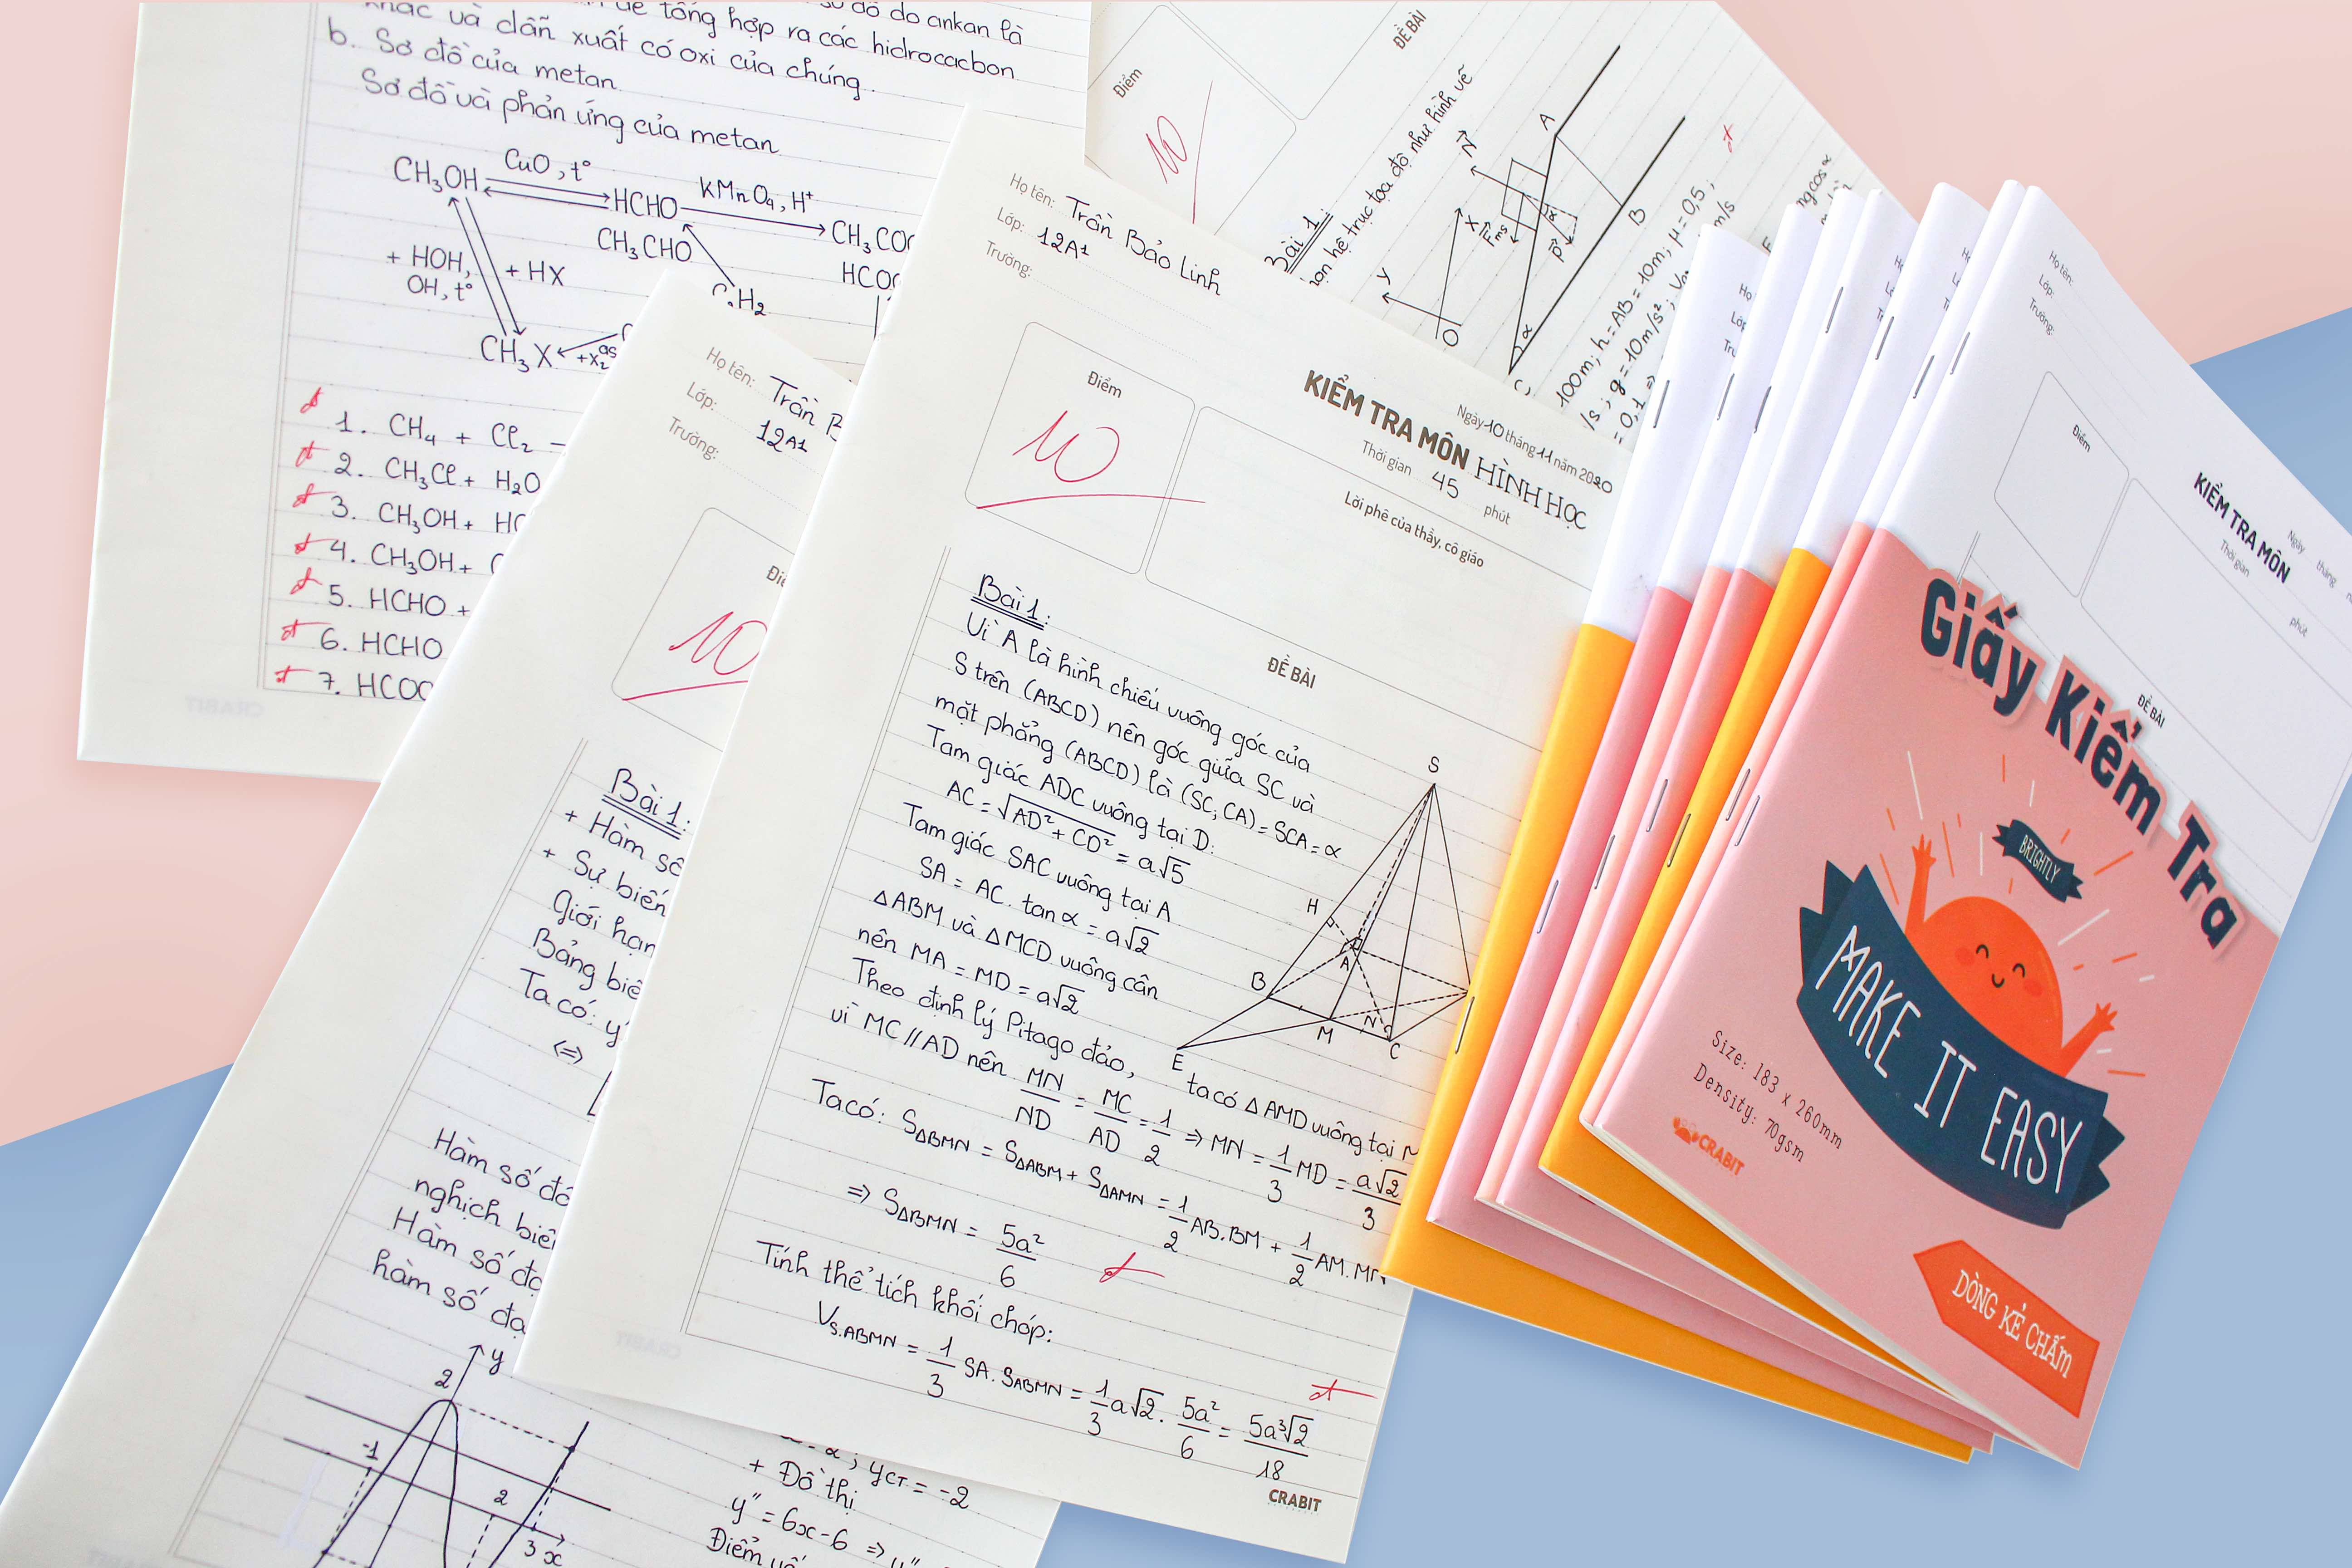 khác và dẫn xuất có oxi của chúng.
tổng hợp ra các hidrocacbon
sơ đồ do ankan là
b. Sơ đồ của metan
Sơ đồ và phản ứng của metan
CH₃OH
CuO, t°
HCHO
KMnO₄, H⁺
CH₃CHO
+ HOH,
OH, t°
+ HX
CH₃X
+X₂
as
1. CH₄ + Cl₂
2. CH₃Cl + H₂O
3. CH₃OH +
4. CH₃OH +
5. HCHO +
6. HCHO
7.
CRABIT
Điểm
10
ĐỀ BÀI
Bài 1:
hệ trục tọa độ như hình vẽ
y
O
X
N
Fms
P
α
A
B
α
100m; h = AB = 10m; μ = 0,5;
g = 10m/s²;
Họ tên: Trần B
Lớp: 12A1
Trường:
10
Bài 1:
+ Hàm số
+ Sự biến
Giới hạn
Bảng
Ta có: y'
<=>
Hàm số
nghịch
Hàm số
hàm số
y
2
-1
2
3 x
; yCT = -2
+ Đồ thị
y'' = 6x - 6 => y''
Điểm
Họ tên: Trần Bảo Linh
Lớp: 12A1
Trường:
Điểm
10
Ngày 10 tháng 11 năm 2020
KIỂM TRA MÔN HÌNH HỌC
Thời gian 45 phút
Lời phê của thầy, cô giáo
ĐỀ BÀI
Bài 1:
Vì A là hình chiếu vuông góc của
S trên (ABCD) nên góc giữa SC và
mặt phẳng (ABCD) là (SC; CA) = SCA = α
Tam giác ADC vuông tại D:
AC = √AD² + CD² = a√5
Tam giác SAC vuông tại A
SA = AC. tan α = a√2
ΔABM và ΔMCD vuông cân
nên MA = MD = a√2
Theo định lý Pitago đảo, ta có ΔAMD vuông tại M
vì MC // AD nên MN/ND = MC/AD = 1/2 => MN = 1/3 MD = a√2/3
Ta có: SΔBMN = SΔABM + SΔAMN = 1/2 AB.BM + 1/2 AM.MN
=> SΔBMN = 5a²/6
Tính thể tích khối chóp:
VS.ABMN = 1/3 SA. SABMN = 1/3 a√2. 5a²/6 = 5a³√2/18
S
H
A
B
M
N
C
E
CRABIT
Họ tên:
Lớp:
Trường:
Điểm
Ngày tháng
KIỂM TRA MÔN
Thời gian phút
ĐỀ BÀI
Giấy Kiểm Tra
BRIGHTLY
MAKE IT EASY
Size: 183 x 260mm
Density: 70gsm
CRABIT
DÒNG KẺ CHẤM